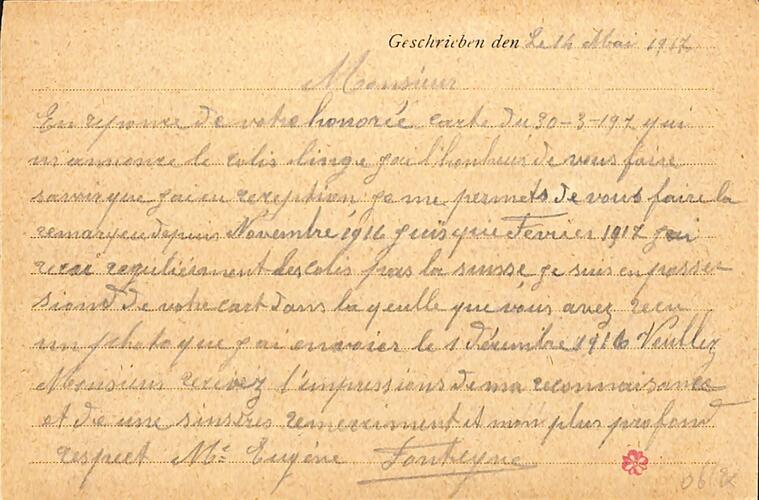 Geschrieben den Le 14 Mai 1917
Monsieur
En reponse de votre honorée carte du 30-3-197 qui
m'annonce le colis linge j'ai l'honheur de vous faire
savoir que j'ai eu reception je me permets de vous faire la
remarque depuis Novembre 1916 puis que Fevrier 1917 j'ai
recai regulièrment des colis pas la suisse je suis en posses
siond de votre cart dans la qeulle que vous avez recu
un photo que j'ai envoier le 1 décembre 1916 Veullez
Monsieur recivez l'impressions de ma reconnaisance
et de une sinsères remerciment et mon plus profond
respect Mr Eugène Fonteyne